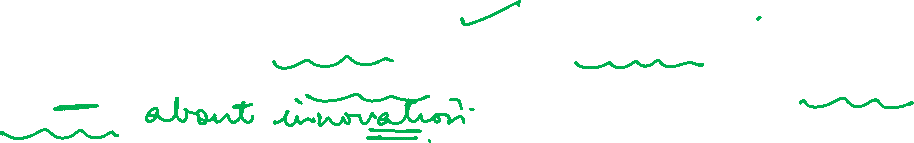 about innovation